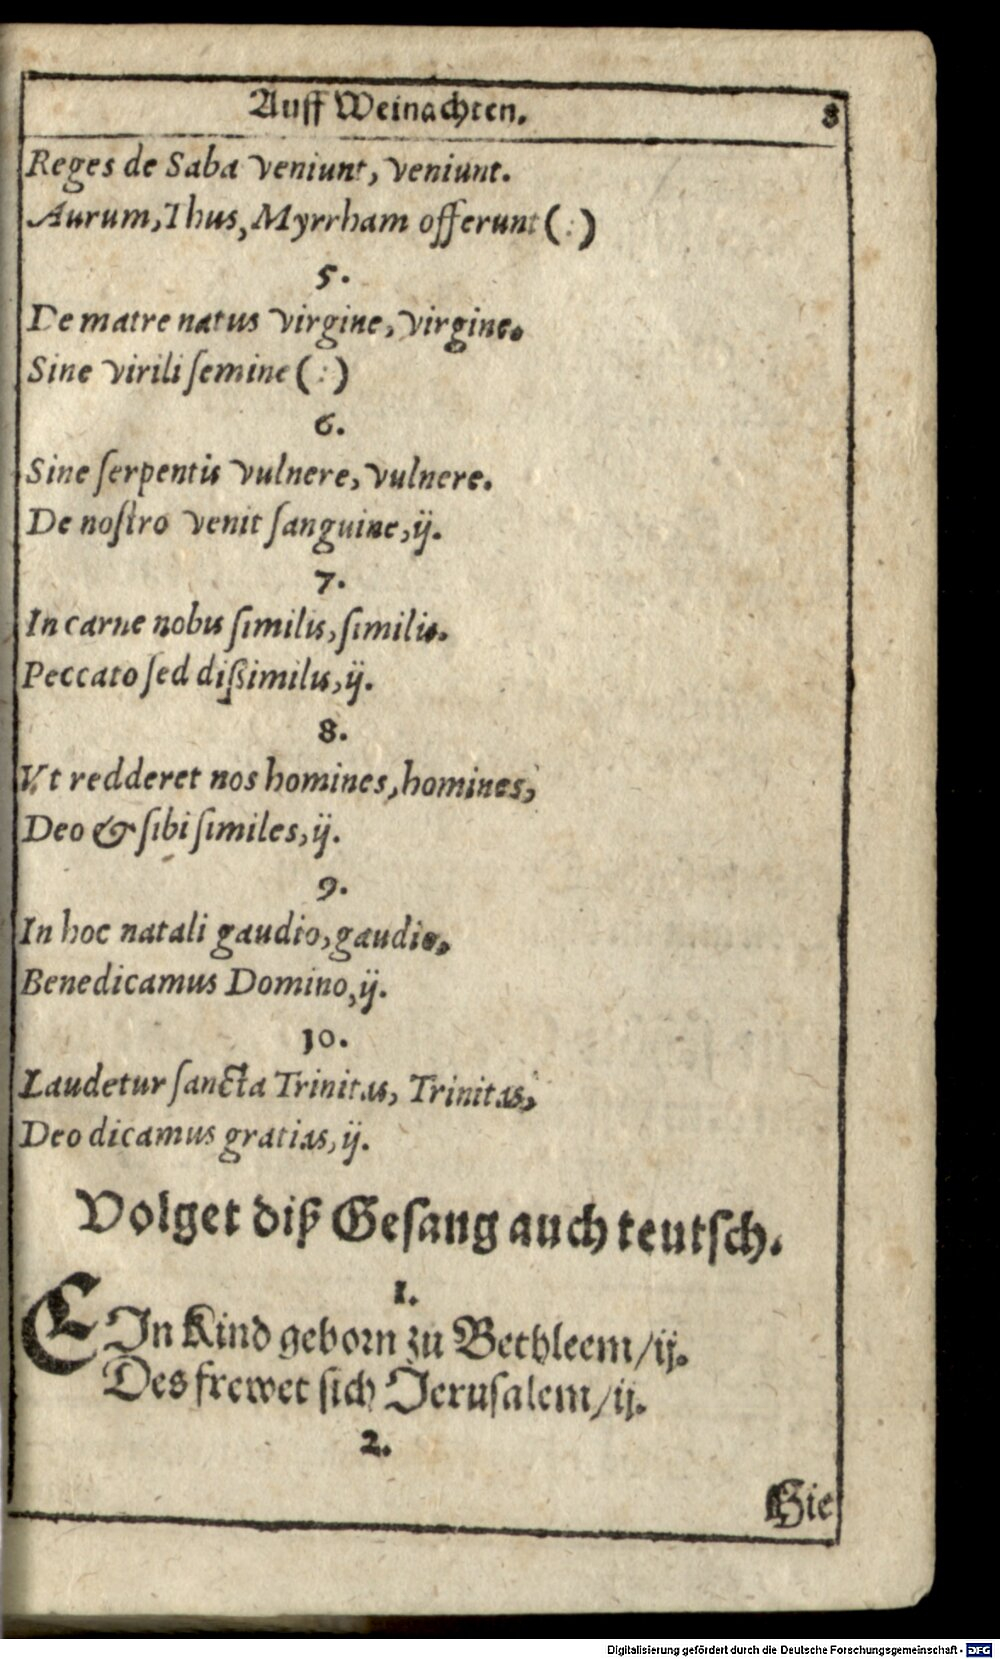 Auff Weinachten. 8
Reges de Saba veniunt, veniunt.
Aurum, Thus, Myrrham offerunt (:)
5.
De matre natus virgine, virgine.
Sine virili ſemine (:)
6.
Sine ſerpentis vulnere, vulnere.
De noſtro venit ſanguine, ij.
7.
In carne nobis ſimilis, ſimilis.
Peccato ſed dißimilis, ij.
8.
Vt redderet nos homines, homines,
Deo & ſibi ſimiles, ij.
9.
In hoc natali gaudio, gaudio,
Benedicamus Domino, ij.
10.
Laudetur ſancta Trinitas, Trinitas,
Deo dicamus gratias, ij.
Volget diß Geſang auch teutſch.
1.
EIn Kind geborn zu Bethleem / ij.
Des frewet ſich Jeruſalem / ij.
2.
Hie
Digitalisierung gefördert durch die Deutsche Forschungsgemeinschaft - DFG